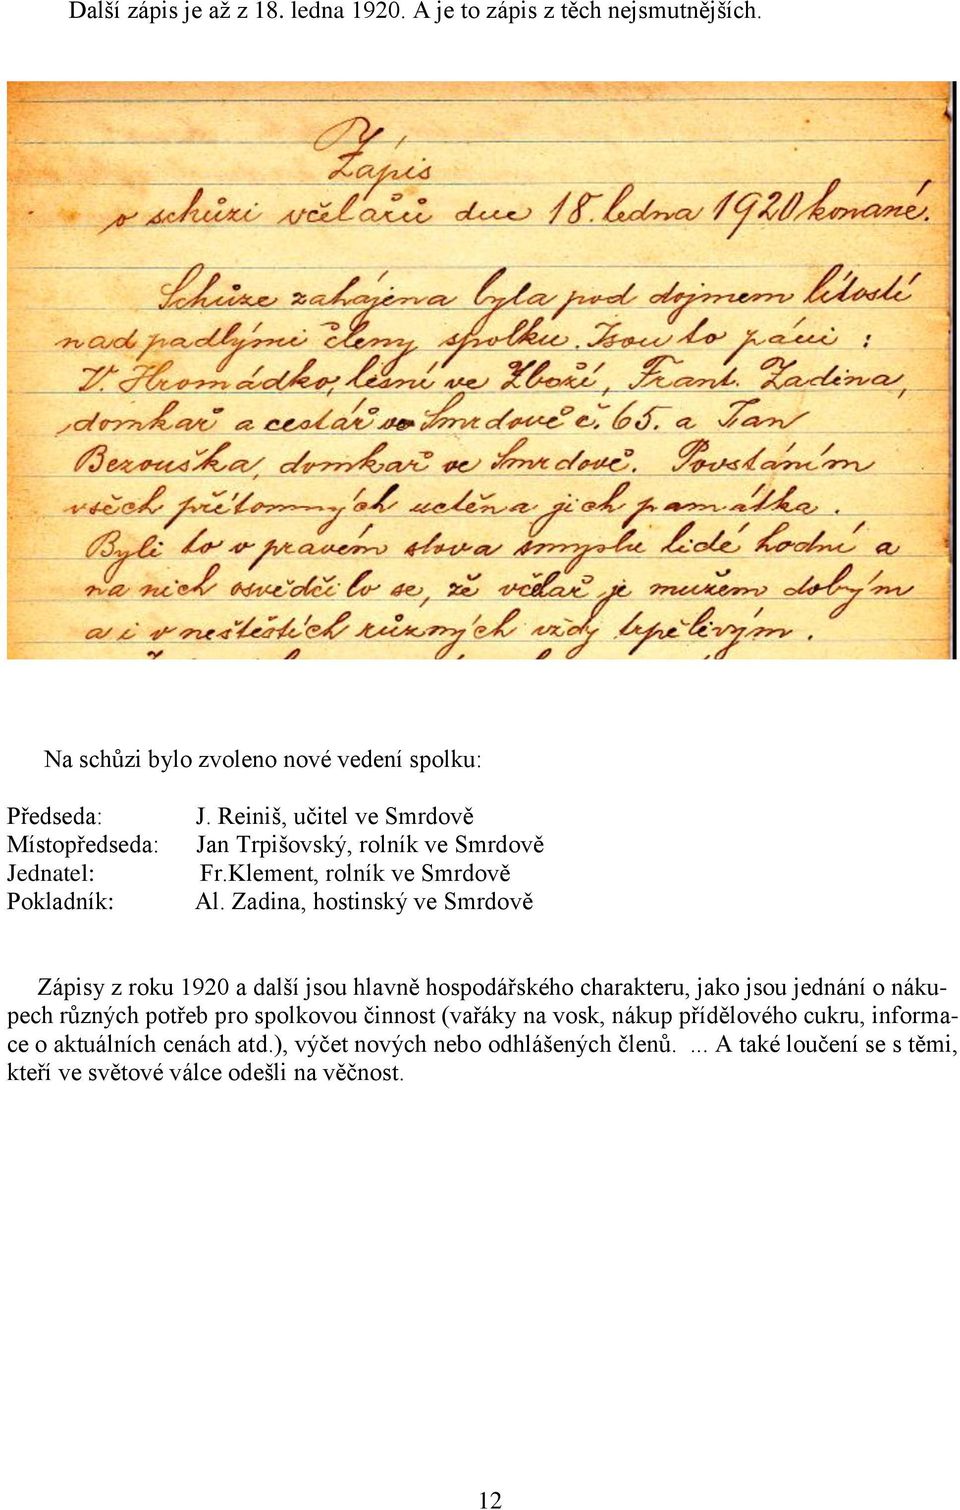 Další zápis je až z 18. ledna 1920. A je to zápis z těch nejsmutnějších.
Zápis
o schůzi včelařů dne 18. ledna 1920 konané.
Schůze zahájena byla pod dojmem lítostí
nad padlými členy spolku. Jsou to páni :
V. Hromádko, lesní ve Zboží, Frant. Zadina,
domkař a cestář ve Smrdově č. 65. a Jan
Bezouška, domkař ve Smrdově. Povstáním
všech přítomných uctěna jich památka.
Byli to v pravém slova smyslu lidé hodní a
na nich osvědčilo se, že včelař je mužem dobrým
a i v neštěstích různých vždy trpělivým.
Na schůzi bylo zvoleno nové vedení spolku:
Předseda: J. Reiniš, učitel ve Smrdově
Místopředseda: Jan Trpišovský, rolník ve Smrdově
Jednatel: Fr.Klement, rolník ve Smrdově
Pokladník: Al. Zadina, hostinský ve Smrdově
Zápisy z roku 1920 a další jsou hlavně hospodářského charakteru, jako jsou jednání o náku-
pech různých potřeb pro spolkovou činnost (vařáky na vosk, nákup přídělového cukru, informa-
ce o aktuálních cenách atd.), výčet nových nebo odhlášených členů. ... A také loučení se s těmi,
kteří ve světové válce odešli na věčnost.
12